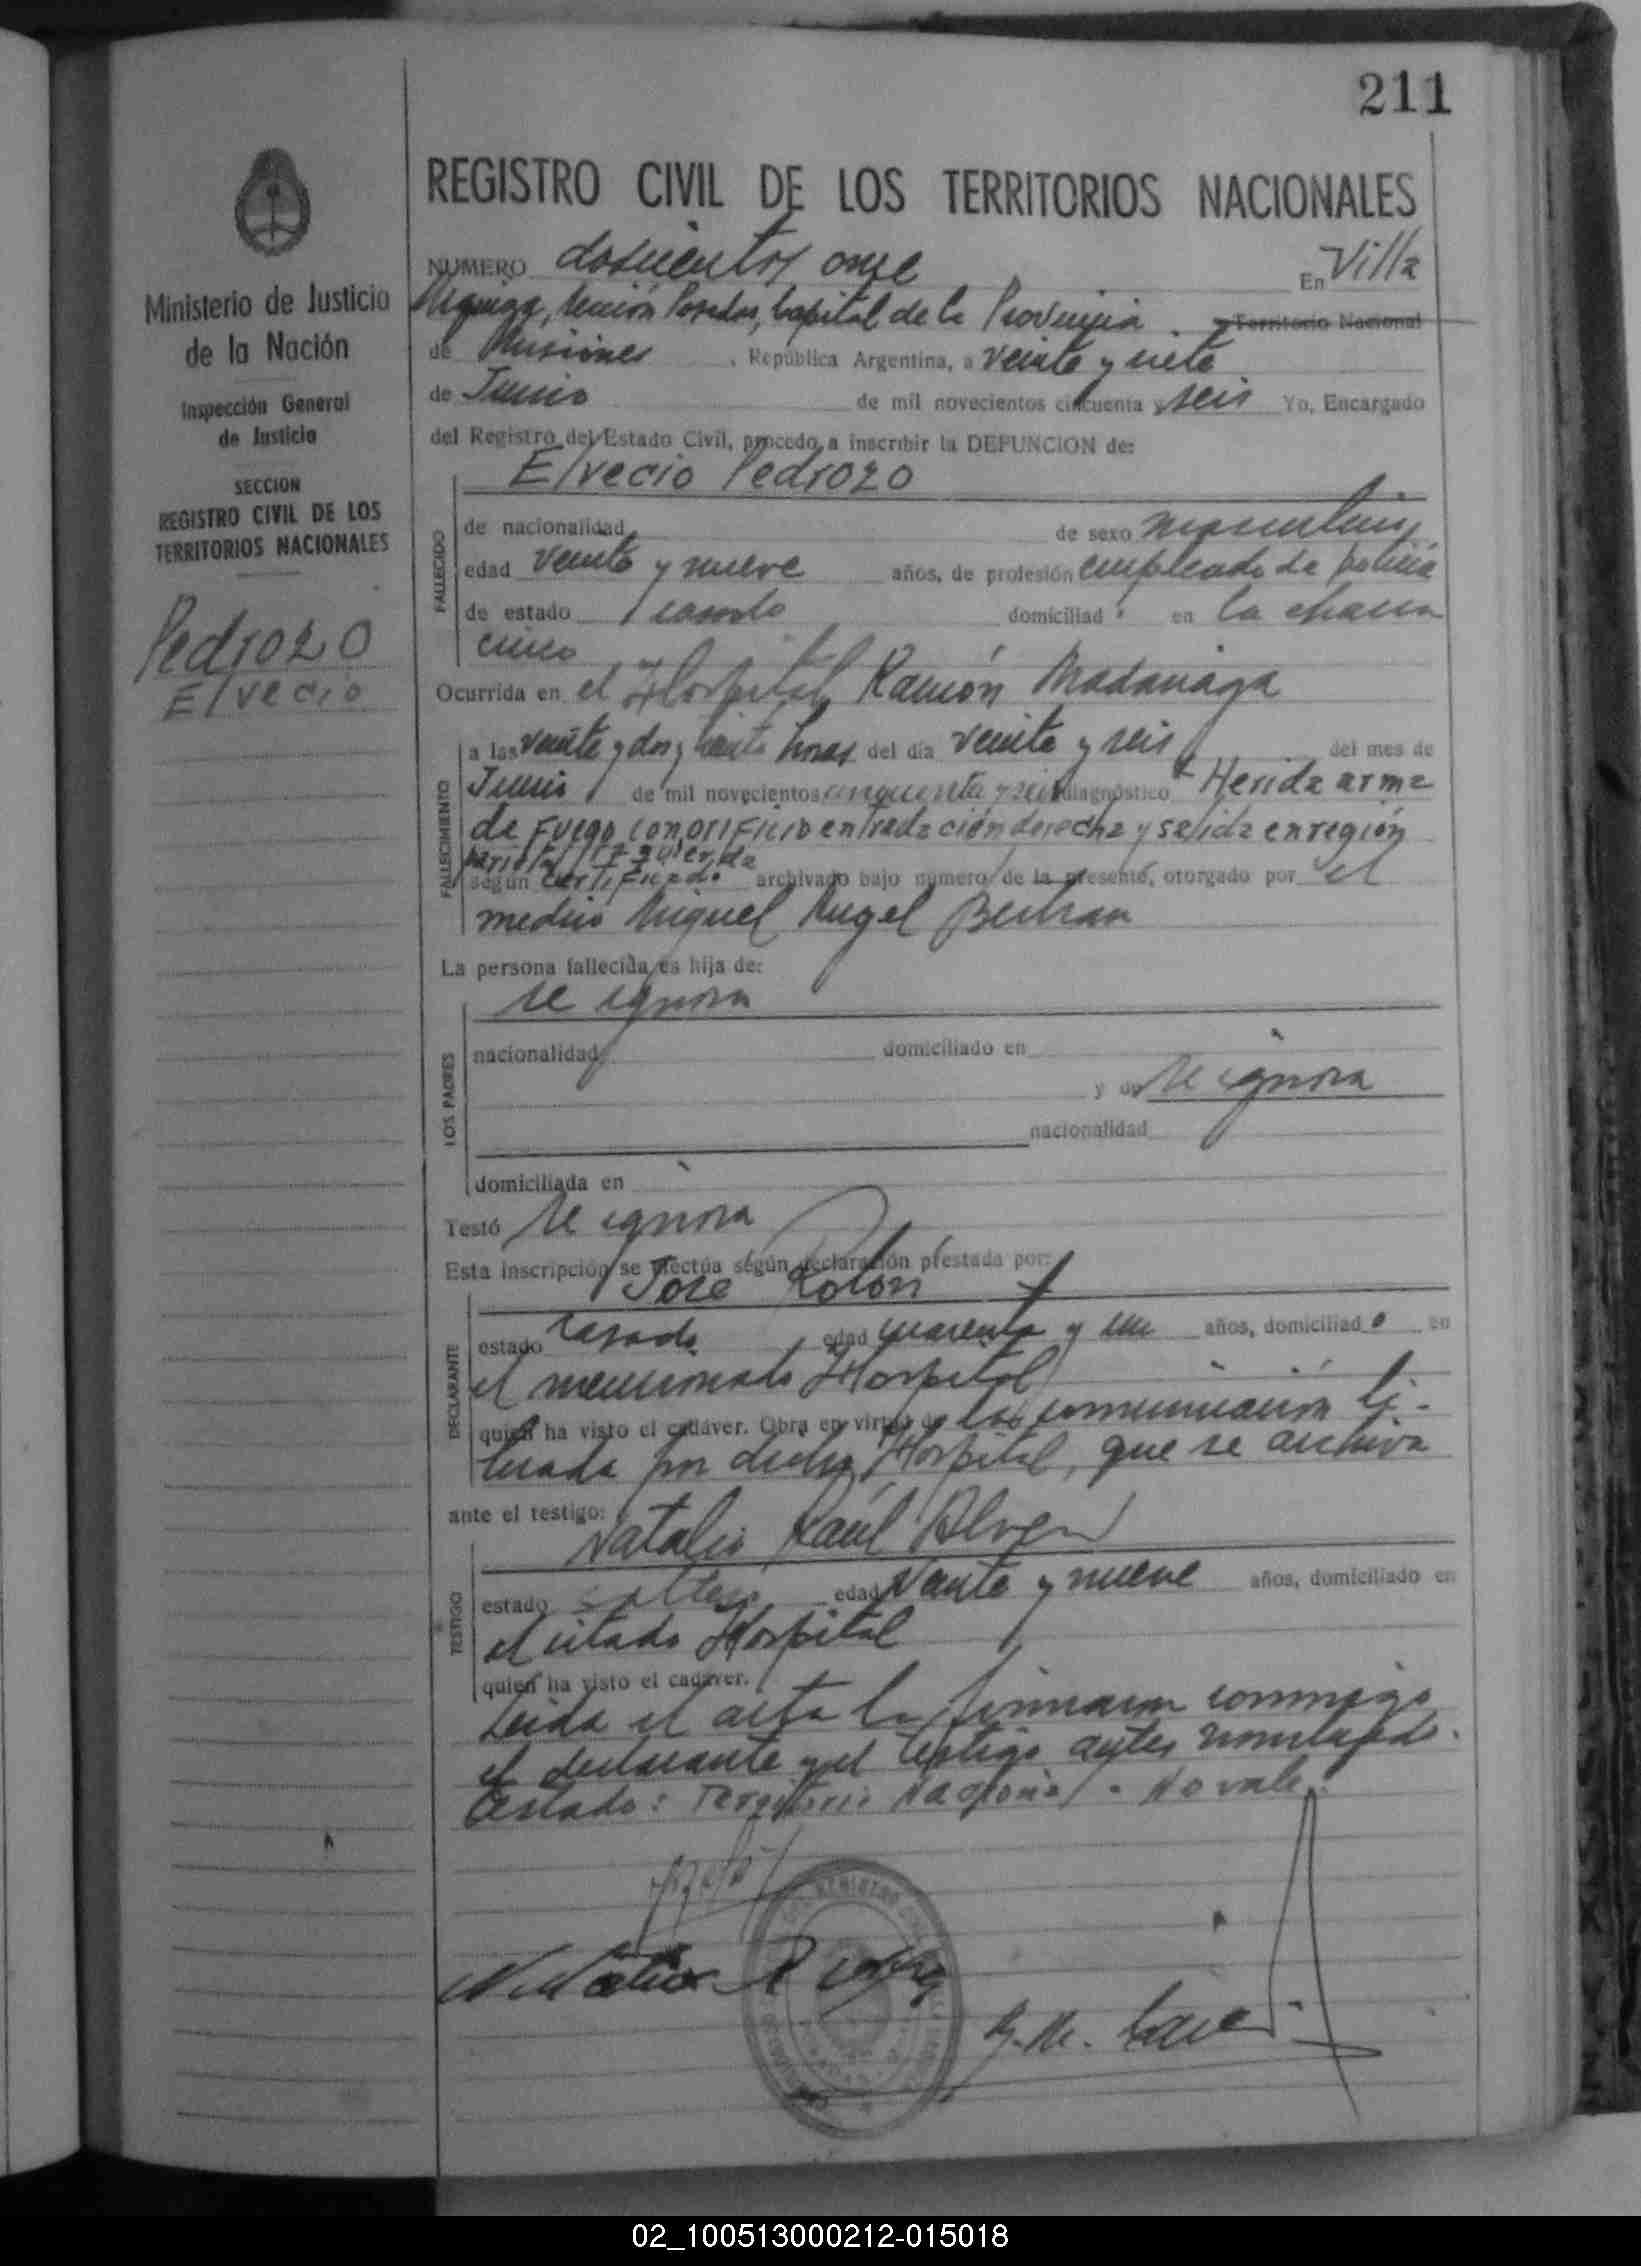 211
Ministerio de Justicia
de la Nación
Inspección General
de Justicia
SECCION
REGISTRO CIVIL DE LOS
TERRITORIOS NACIONALES
Pedrozo
Elvecio
REGISTRO CIVIL DE LOS TERRITORIOS NACIONALES
NUMERO doscientos once En Villa
Urquiza, Sección Posadas, Capital de la Provincia Territorio Nacional
de Misiones, República Argentina, a veinte y siete
de Junio de mil novecientos cincuenta y seis Yo, Encargado
del Registro del Estado Civil, procedo a inscribir la DEFUNCION de:
Elvecio Pedrozo
FALLECIDO
de nacionalidad de sexo masculino
edad veinte y nueve años, de profesión empleado de policia
de estado casado domiciliado en la chacra
cinco
Ocurrida en el Hospital Ramón Madariaga
FALLECIMIENTO
a las veinte y dos y treinta horas del día veinte y seis del mes de
Junio de mil novecientos cincuenta y seis diagnóstico Herida arma
de fuego con orificio entrada cien derecha y salida en región
parietal izquierda
según certificado archivado bajo número de la presente, otorgado por el
medico Miguel Angel Beltran
La persona fallecida es hija de:
se ignora
LOS PADRES
nacionalidad domiciliado en
y de se ignora
nacionalidad
domiciliada en
Testó se ignora
Esta inscripción se efectúa según declaración prestada por:
José Rolón
DECLARANTE
estado casado edad cuarenta y un años, domiciliado en
el mencionado Hospital
quien ha visto el cadáver. Obra en virtud de la comunicación li-
brada por dicho Hospital, que se archiva
ante el testigo:
Natalio Raúl
TESTIGO
estado soltero edad veinte y nueve años, domiciliado en
el citado Hospital
quien ha visto el cadáver.
Leida el acta la firmaron conmigo
el declarante y el testigo antes nombrado.
Testado: Territorio Nacional - No vale.
02_100513000212-015018